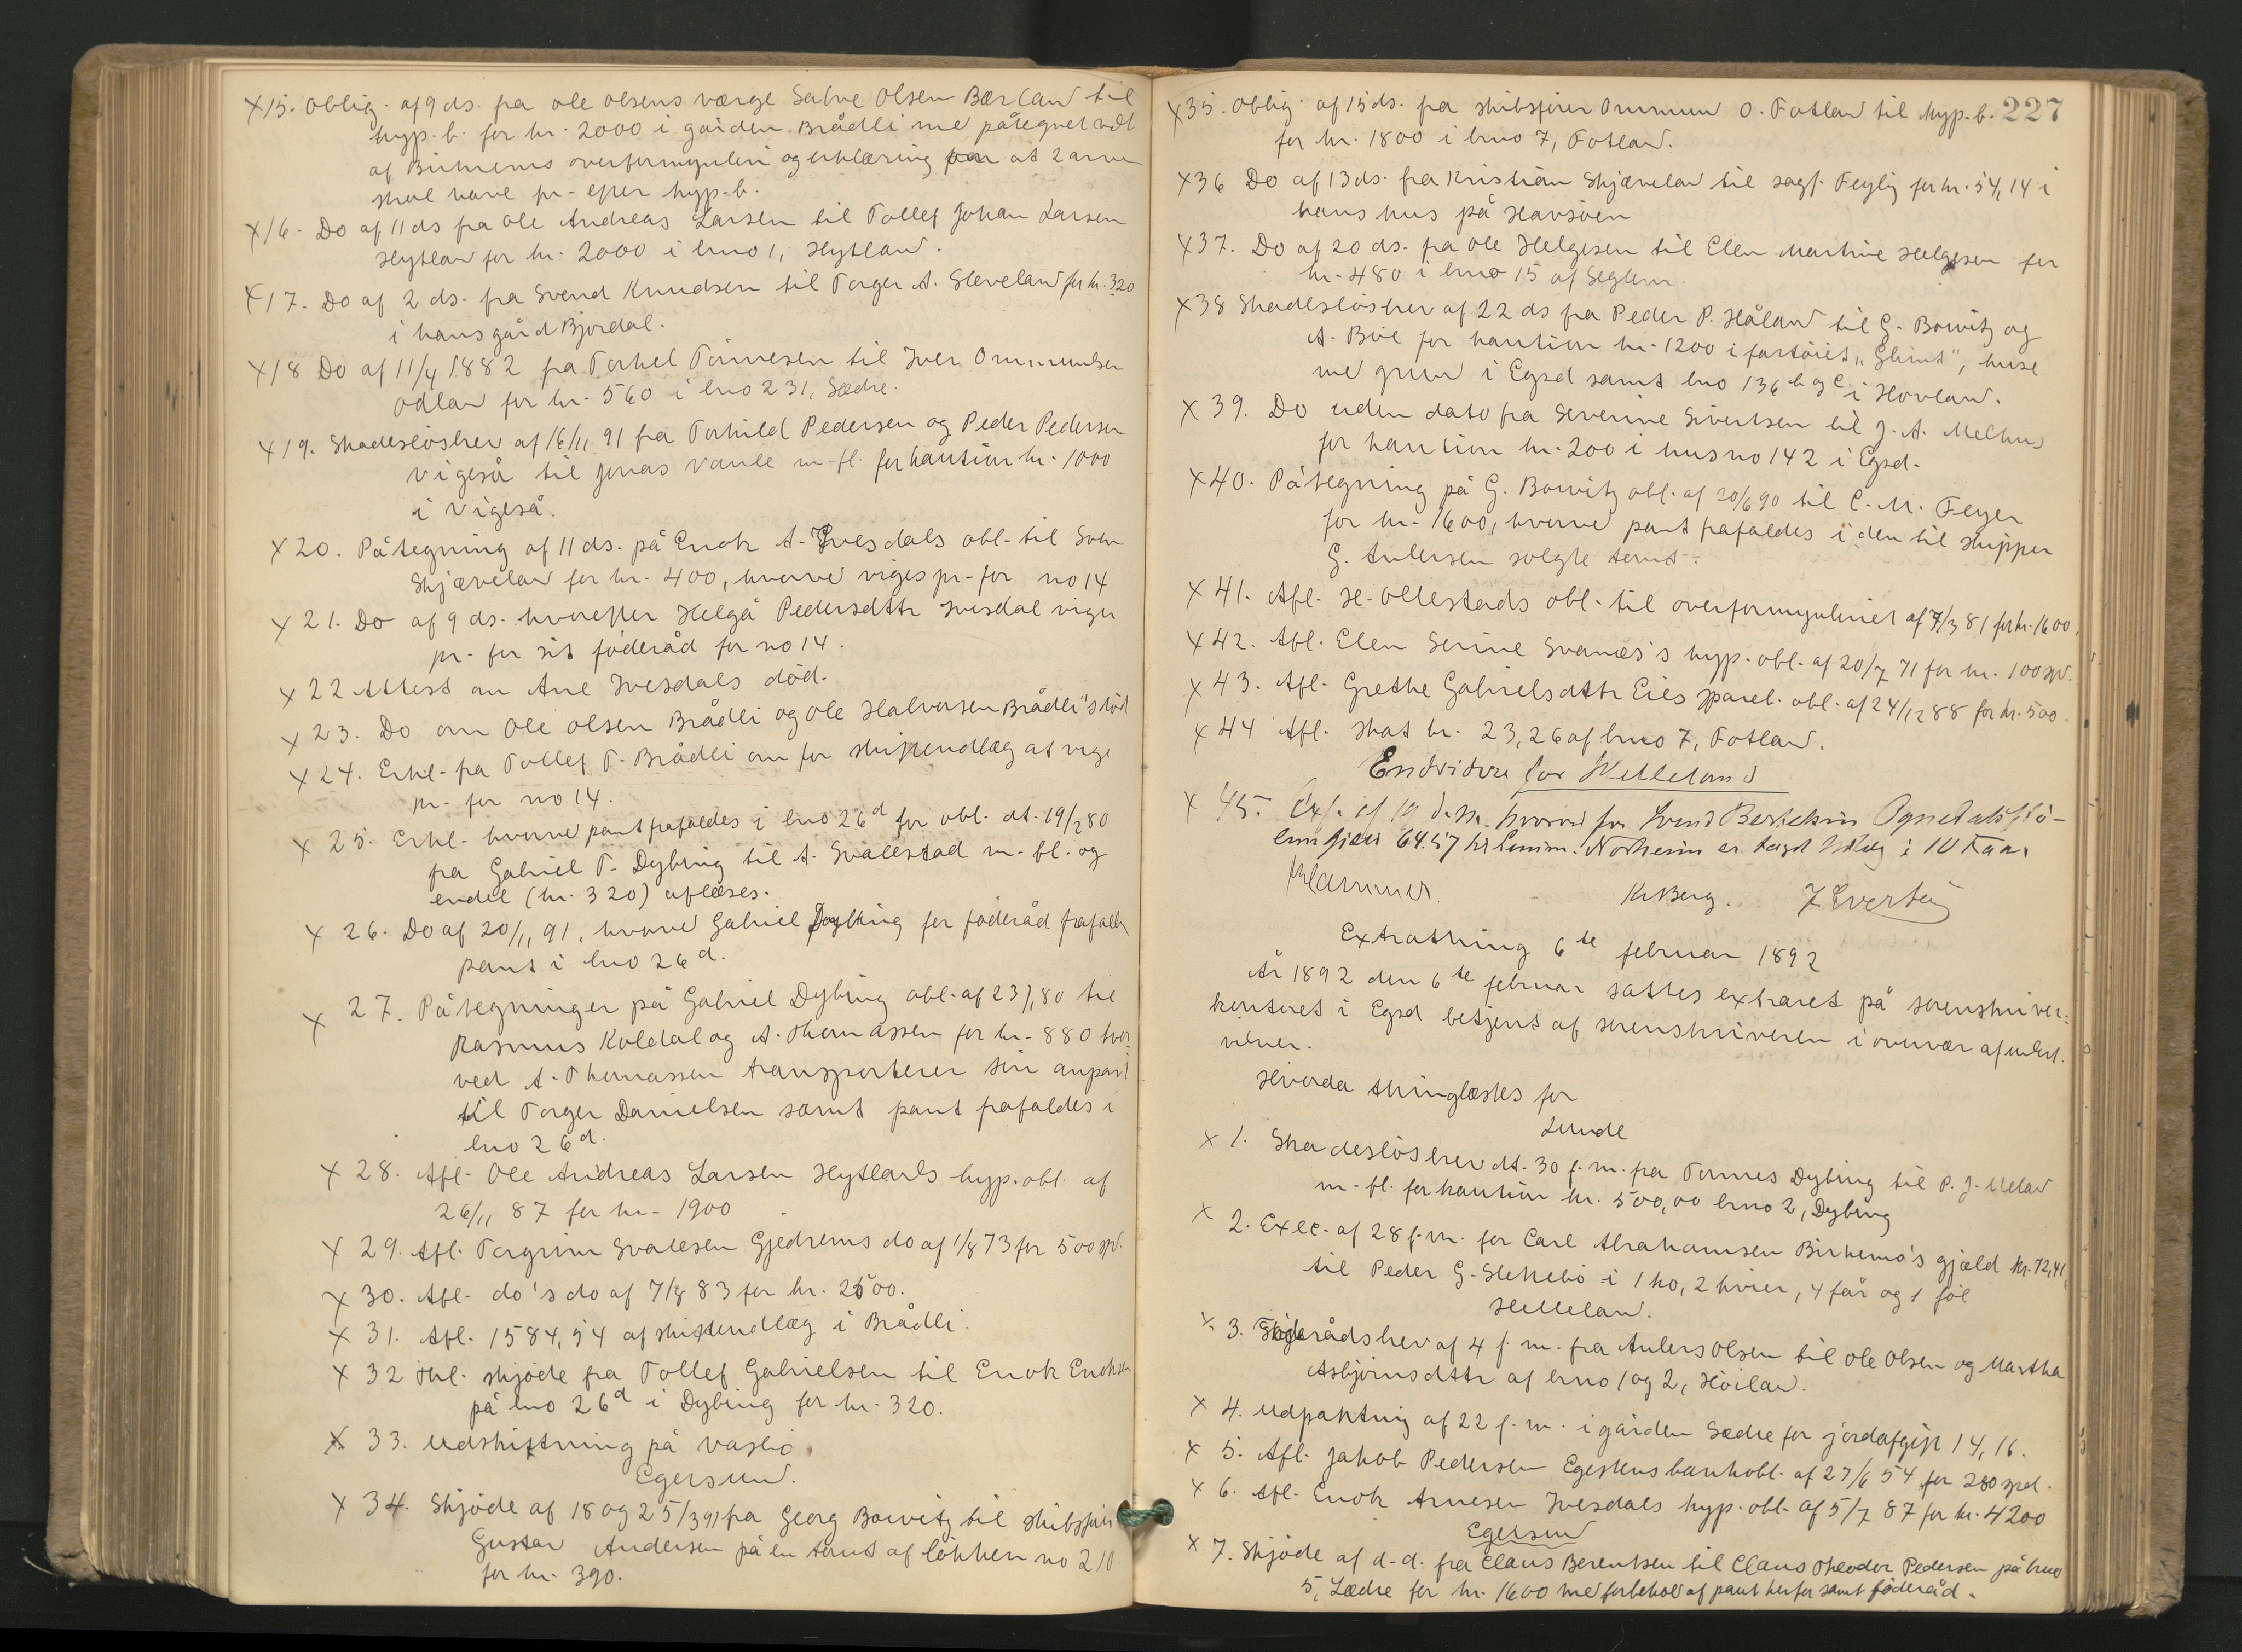 ×15. Oblig. af 9 ds. fra Ole Olsens værge Salve Olsen Bærland til
hyp.b. for kr. 2000 i gården Brådli med påtegnet vedt
af overformynderi og erklæring at 2 arven
skal have pr. efter hyp.b.
×16. Do af 11 ds fra Ole Andreas Larsen til Tollef Johan Larsen
Hytland for kr. 2000 i lno 1, Hytland.
×17. Do af 2 ds. fra Svend Knudsen til Torger A. Sleveland for kr. 320
i hans gård Bjordal.
×18 Do af 11/4 1882 fra Torkel Tønnesen til Iver Ommundsen
Odland for kr. 560 i lno 231, Sædre.
×19. Skadesløsbrev af 16/11 91 fra Torhild Pedersen og Peder Pedersen
Vigeså til Jonas Vaule m.fl. for kaution kr. 1000
i Vigeså.
×20. Påtegning af 11 ds. på Enok A. Ivesdals obl. til Sven
Skjæveland for kr. 400, hvorved viges pr. for no 14
×21. Do af 9 ds. hvorefter Helga Pedersdttr Ivesdal viger
pr. for sit föderåd for no 14.
×22 Attest om Ane Ivesdals död.
×23. Do om Ole Olsen Brådli og Ole Halvorsen Brådli's död
×24. Erkl. fra Tollef T. Brådli om for skifteudlæg at vige
pr. for no 14.
×25. Erkl. hvorved pant frafaldes i lno 26d for obl. dt. 19/2 80
fra Gabriel T. Dybing til A. Svalestad m.fl. og
endel (kr. 320) aflæses.
×26. Do af 20/11 91, hvorved Gabriel Dybing for föderåd frafalder
pant i lno 26d.
×27. Påtegninger på Gabriel Dybing obl. af 23/1 80 til
Rasmus Koldal og A. Thomassen for kr. 880 hvor-
ved A. Thomassen transporterer sin anpart
til Torger Danielsen samt pant frafaldes i
lno 26d.
×28. Afl. Ole Andreas Larsen Hytlands hyp.obl. af
26/11 87 for kr. 1900
×29. Afl. Torgrim Svalesen Gjedrems do af 1/8 73 for 500 spd.
×30. Afl. do's do af 7/8 83 for kr. 2500.
×31. Afl. 1584,54 af skifteudlæg i Brådli.
×32 Thl. skjöde fra Tollef Gabrielsen til Enok Enoksen
på lno 26d i Dybing for kr. 320.
×33. Udskiftning på Vasbö.
Egersund.
×34. Skjöde af 18 og 25/3 91 fra Georg Bowitz til skibsförer
Gustav Andersen på en tomt af lökken no 210
for kr. 390.
227
×35. Oblig. af 15 ds. fra skibsförer Ommund O. Fotland til hyp.b.
for kr. 1800 i lno 7, Fotland.
×36 Do af 13 ds. fra Kristian Skjæveland til sagf. Feylig for kr. 54,14 i
hans hus på Havsöen
×37. Do af 20 ds. fra Ole Helgesen til Elen Martine Helgesen for
kr. 480 i lno 15 af Seglem.
×38 Skadeslösbrev af 22 ds fra Peder P. Håland til G. Bowitz og
A. Böe for kaution kr. 1200 i fartöiet "Glimt", huse
med grund i Egsd samt lno 136 b og c i Hovland.
×39. Do uden dato fra Severine Sivertsen til J. A. Melhus
for kaution kr. 200 i hus no 142 i Egsd.
×40. Påtegning på G. Bowitz obl. af 20/6 90 til C. M. Feyer
for kr. 1600, hvorved pant frafaldes i den til skipper
G. Andersen solgte tomt.
×41. Afl. H. Ollestads obl. til overformynderiet af 7/3 81 for kr. 1600.
×42. Afl. Elen Serine Svanes's hyp.obl. af 20/7 71 for kr. 100 spd.
×43. Afl. Grethe Gabrielsdttr Eies spareb. obl. af 24/12 88 for kr. 500.
×44 Afl. skat kr. 23,26 af lno 7, Fotland.
Endvidere for Helleland
×45. Ex. af 10 d.m. hvorved for Svend Bertelsen
64.57 til er taget Udlæg i 10 Faar.
Hammer. Kr Berg. J Evertsen
Extrathing 6te februar 1892
År 1892 den 6te februar sattes extraret på sorenskriver-
kontoret i Egsd betjent af sorenskriveren i overvær af undert.
vidner.
Hvorda thinglæstes for
Lunde
×1. Skadeslösbrev dt. 30 f.m. fra Tönnes Dybing til P. J. Ueland
m.fl. for kaution kr. 500,00 lno 2, Dybing
×2. Exec. af 28 f.m. for Carl Abrahamsen Birkemo's gjæld kr. 72,41
til Peder G. Slettebö i 1 ko, 2 kvier, 4 får og 1 föl
Helleland.
×3. Föderådsbrev af 4 f.m. fra Anders Olsen til Ole Olsen og Martha
Asbjörnsdttr af lno 1 og 2, Höiland.
×4. Udpantning af 22 f.m. i gården Sædre for jordafgift 14,16.
×5. Afl. Jakob Pedersen Egestens bankobl. af 27/6 54 for 280 spd.
×6. Afl. Enok Arnesen Ivesdals hyp.obl. af 5/7 87 for kr. 4200
Egersund
×7. Skjöde af d.d. fra Claus Berentsen til Claus Theodor Pedersen på lno
5, Lædre for kr. 1600 med forbehold af pant herfor samt föderåd.